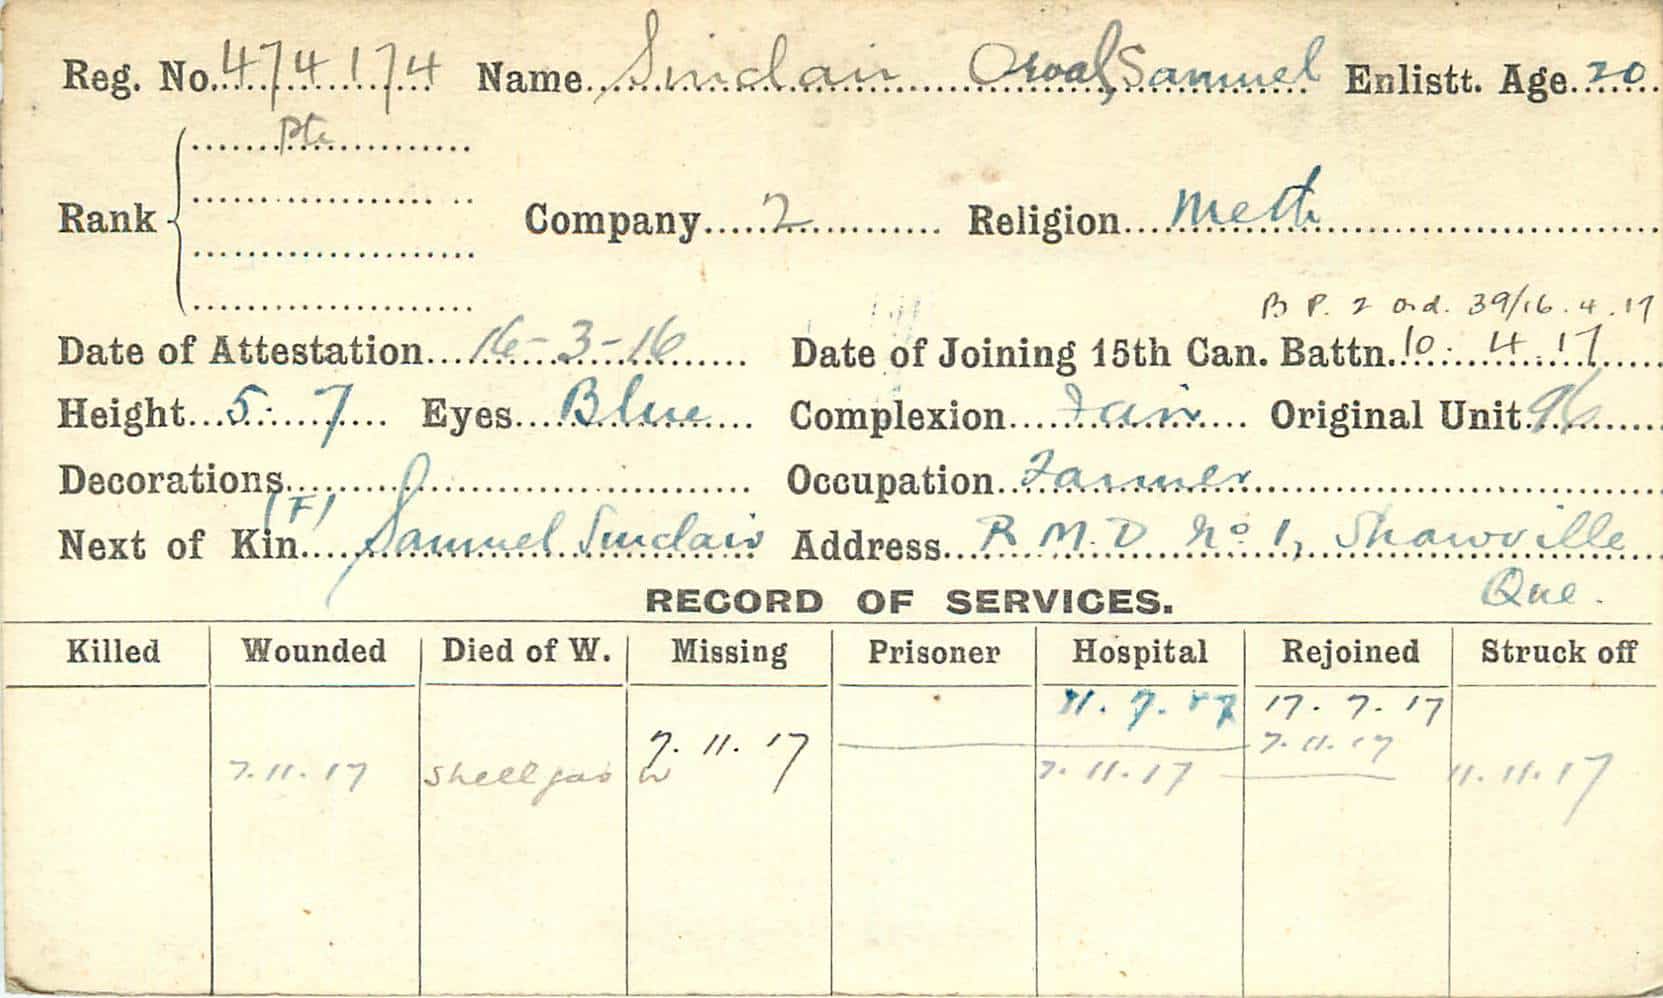 Reg. No. 474174 Name Sinclair Orval, Samuel Enlistt. Age. 20
Pte
Rank Company 2 Religion Meth
B P. 2 Ord. 39/16.4.17
Date of Attestation 16-3-16 Date of Joining 15th Can. Battn. 10.4.17
Height 5. 7 Eyes Blue Complexion Fair Original Unit 96
Decorations Occupation Farmer
(F)
Next of Kin Samuel Sinclair Address R M.D No 1, Shawville
Que.
RECORD OF SERVICES.
Killed Wounded Died of W. Missing Prisoner Hospital Rejoined Struck off
11.7.17 17.7.17
7.11.17 7.11.17
7.11.17 Shell gas W 7.11.17 11.11.17